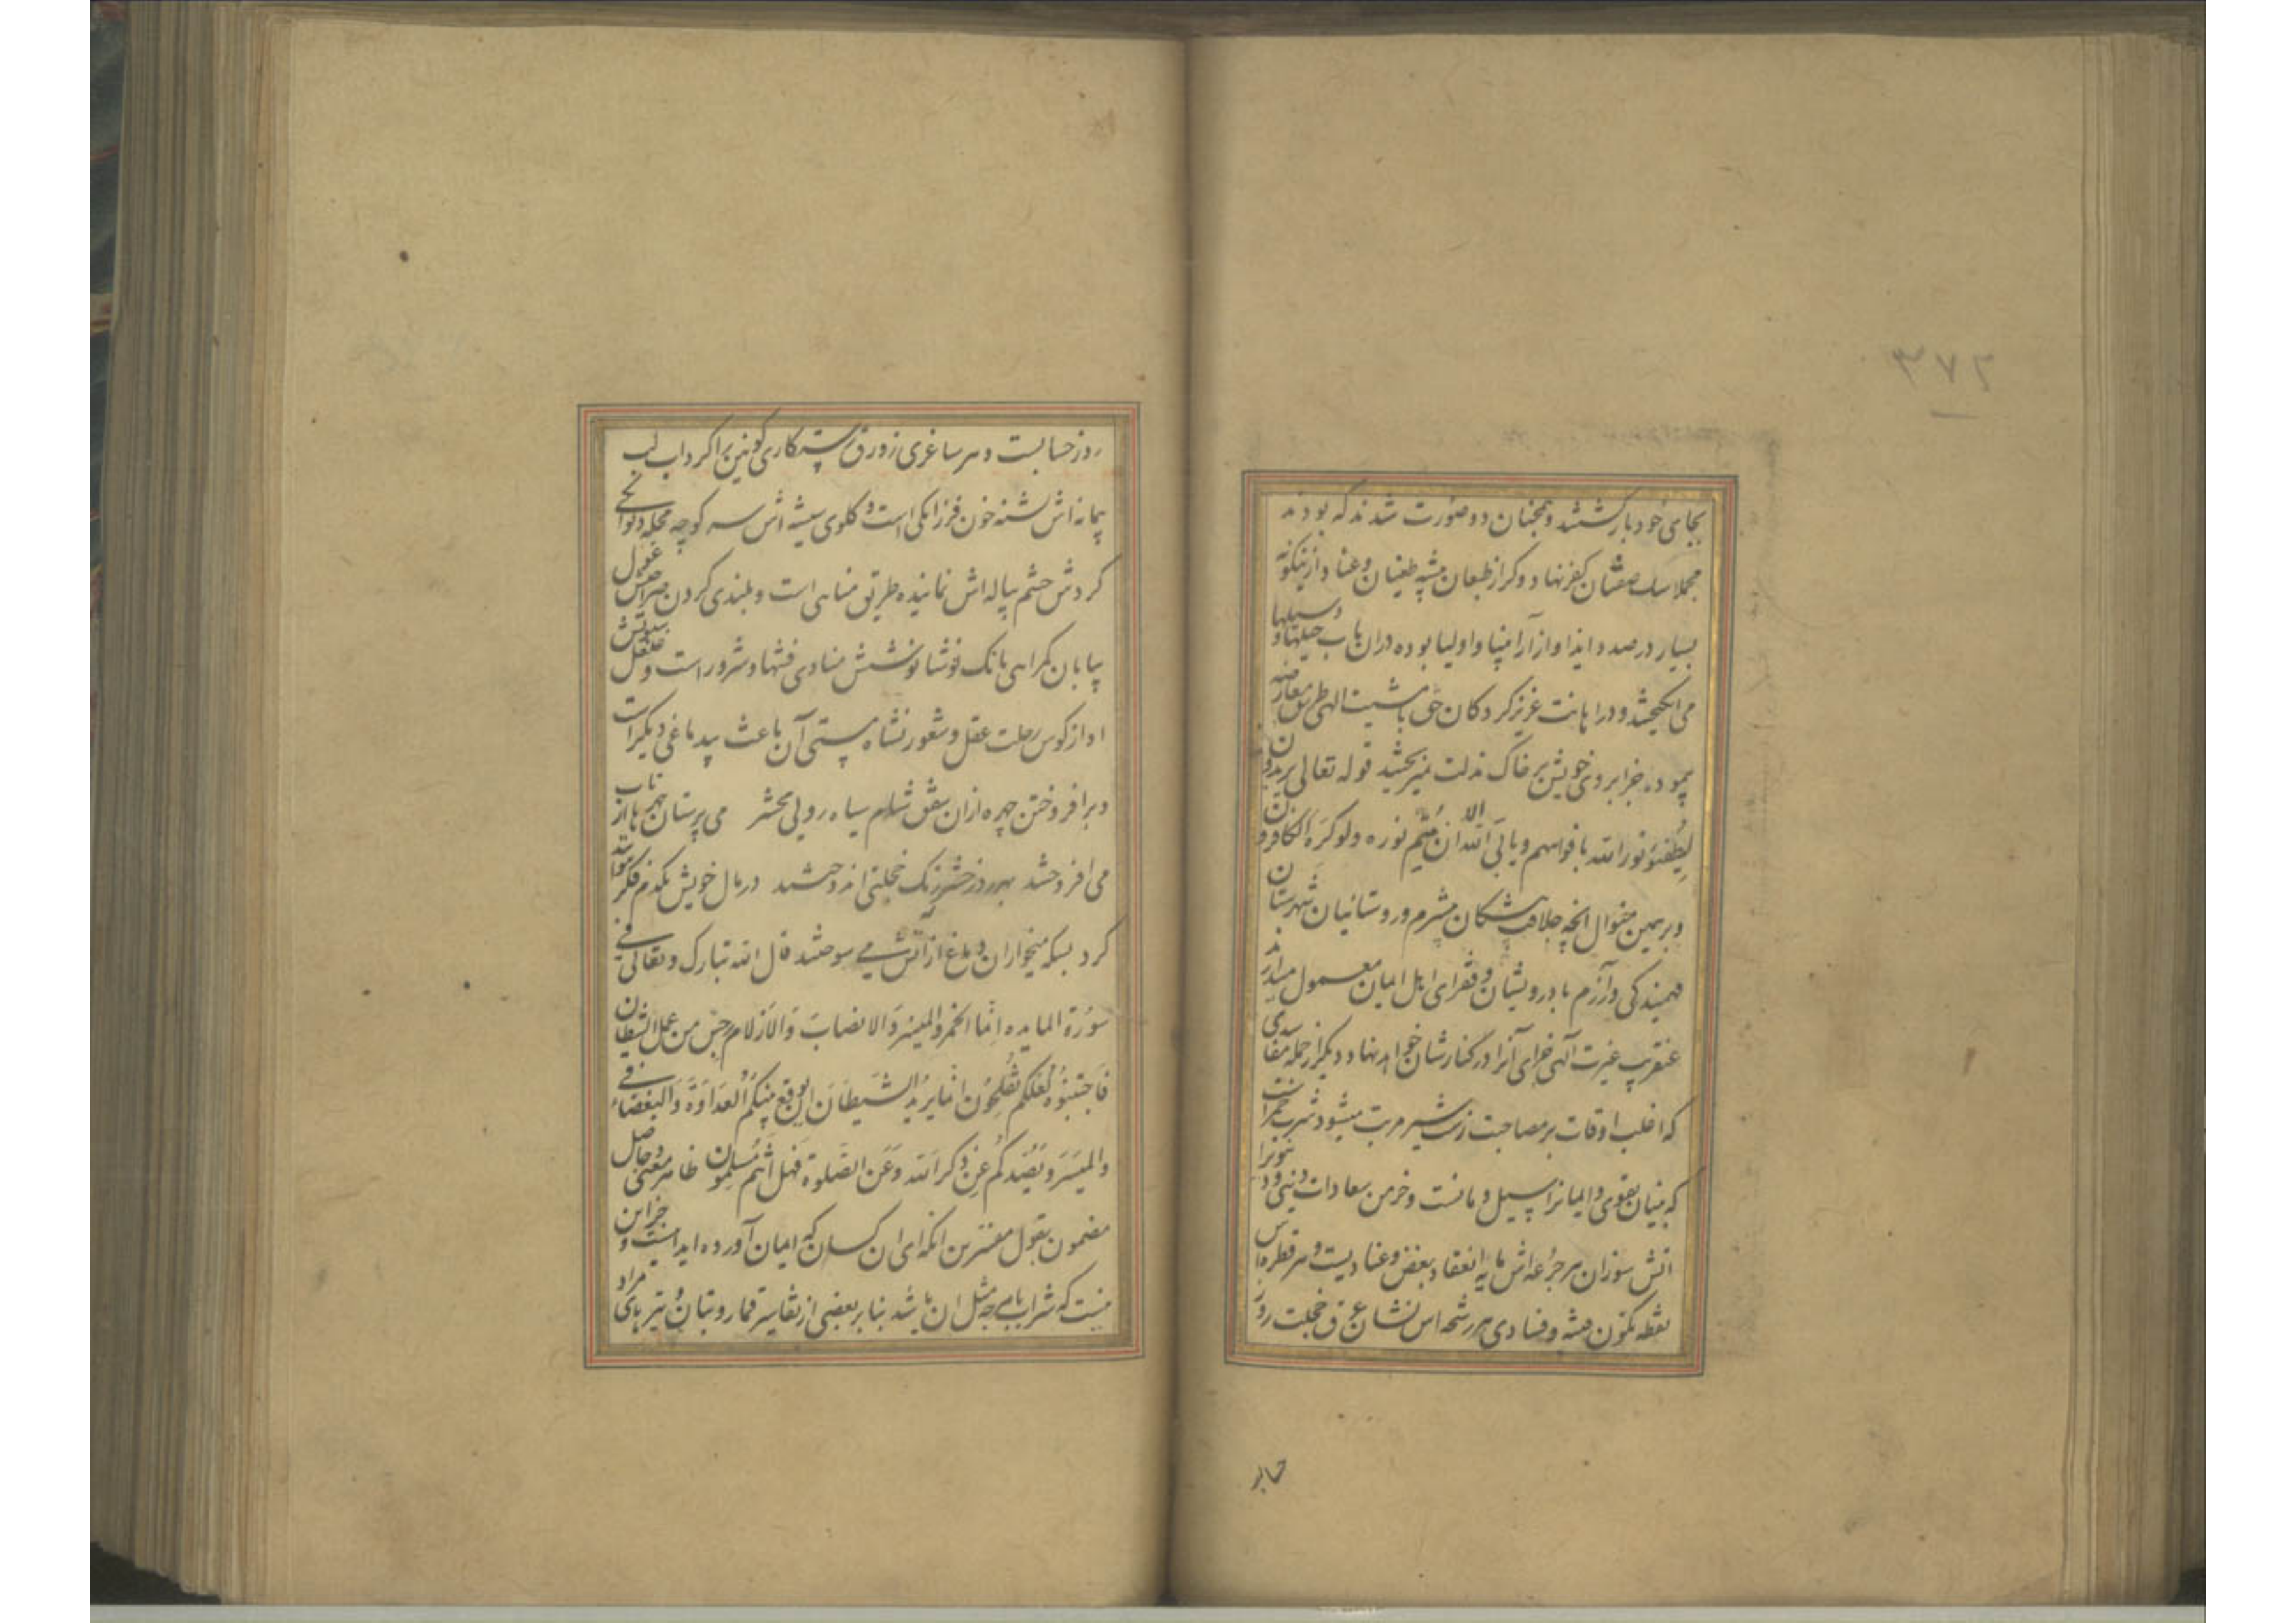 ۳۷۲
بجای خود بازگشتند و همچنان دو صورت شدند که بودند
مجملا سک صفتان کفرنهاد و کراز طبعان پیشه طغیان و عناد ازینگونه
بسیار در صدد ایذا و ازار انبیا و اولیا بوده دران باب حیلتها و وسیلها
می انگیختند و در اهانت عزیز کردکان حق با مشیت الهی طریق معارضه
پیموده جز ابروی خویش بر خاک مذلت نمیریختند قوله تعالی یریدون
لِیُطفِئوُ نور الله بافواههم و یابی الله الا ان یُتِمّ نوره ولو کَرَه الکافرون
و بر همین منوال انچه پیشکان بیشرم و روستائیان شهرستان
فهمیدکی و آزرم با درویشان و فقرای اهل ایمان معمول میدارند
عنقریب غیرت الهی جزای آنرا در کنارشان خواهد نهاد و دیکر از جمله مفاسدی
که اغلب اوقات بر مصاحبت زن شیر مرتب میشود شرب خمرانست
که بنیان تقوی و ایمانرا سیل دمانست و خرمن سعادات دینی و دنیویرا
اتش سوزان هر جُرعه اش مایه انعقاد بغض و عنادیست و هر قطره اس
نقطه تکون فتنه و فسادی هر رشحه اس نشان عرق خجلت روز
حسابـ
روز حسابست و هر ساغری زورق رستکاری کونین را کرداب لب
پیمانه اش تشنه خون فرزانکی است و کلوی شیشه اش سر کوچه محله دیوانکی
کردش چشم پیاله اش نماینده طریق مناهی است و بلندی کردن صراحیش غول
بیابان کمراهی بانک نوشانوشش منادی فتنها و شرور است و قلقل
اواز کوس رحلت عقل و شعور نشاه مستی آن باعث بیدماغی دیکر است
و برافروختن چهره ازان شفق شام سیاه رویی محشر می پرستان چهرها از تاب
می افروختند بهر روز حشر رنک خجلتی اندوختند در مال خویش یکدم فکر نتوانند
کرد بسکه میخواران دماغ از آتش می سوختند قال الله تبارک و تعالی فی
سوُرة المایده اِنما الخمر والمیسِر وَالانصابَ وَالاَزلام رجس من عمل الشیطان
فَاجتنبوُه لعَلکم تفُلِحوُن انما یریدُ الشیَطاَن ان یوُقع بینکُم العَداَوَةَ وَالبَغضاء فی
والمیسَرَ وَیَصُدکُم عَن ذِکر اَلله وَعَن الصَلوة فهَل اَنتُم ظاهر معنی و حاصل
مضمون بقول مفسرین انکه ای ان کسان که ایمان آورده اید جز این
نیست که شراب یا هر چه مثل ان باشد بنابر بعضی از تفاسیر قمار و بتان و تیرهای مراد